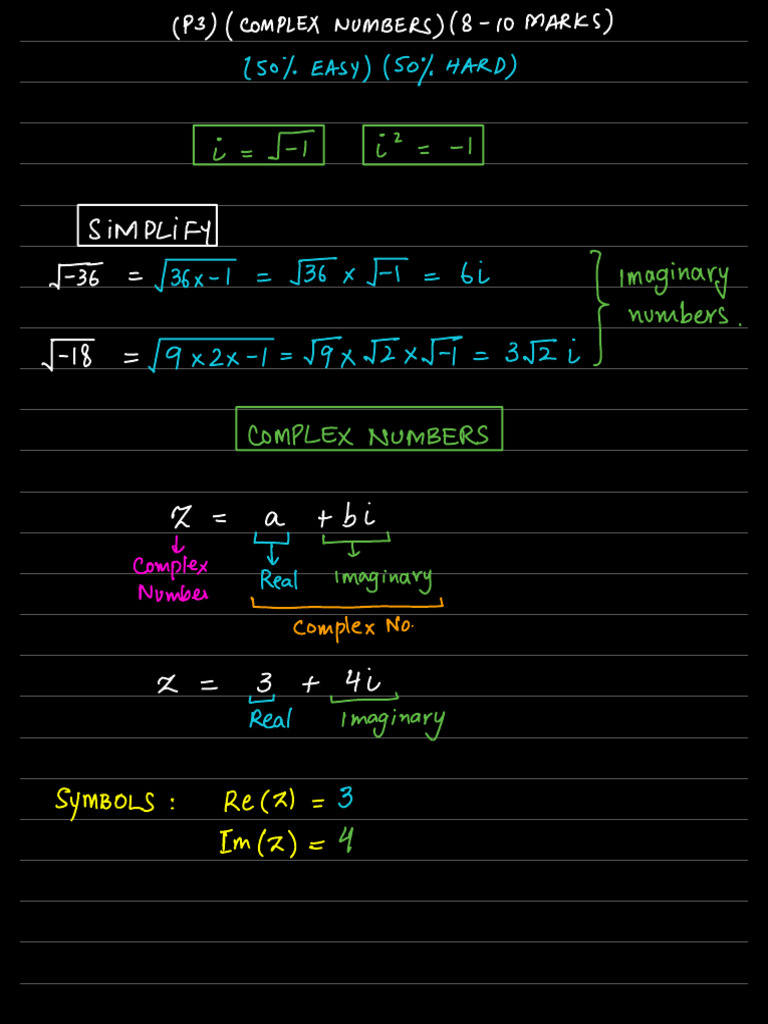 (P3) (COMPLEX NUMBERS) (8-10 MARKS)
(50% EASY) (50% HARD)
i = √-1 i² = -1
SIMPLIFY
√-36 = √36x-1 = √36 x √-1 = 6i
Imaginary
numbers.
√-18 = √9x2x-1 = √9 x √2 x √-1 = 3√2 i
COMPLEX NUMBERS
z = a + bi
Complex
Number
Real Imaginary
Complex No.
z = 3 + 4i
Real Imaginary
SYMBOLS : Re(z) = 3
Im(z) = 4